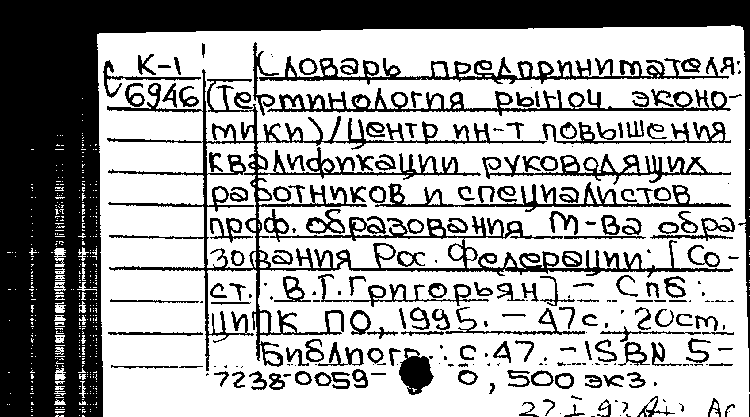 К-1 Словарь предпринимателя:
С 6946 (Терминология рыноч. эконо-
мики)/Центр ин-т повышения
квалификации руководящих
работников и специалистов
проф. образования М-ва обра-
зования Рос. Федерации; [Со-
ст.: В.Г.Григорьян].- СПб:
ЦИПК ПО, 1995. - 47с.; 20cm.
Библиогр.: с.47. - ISBN 5-
7238-0059- 0, 500 экз.